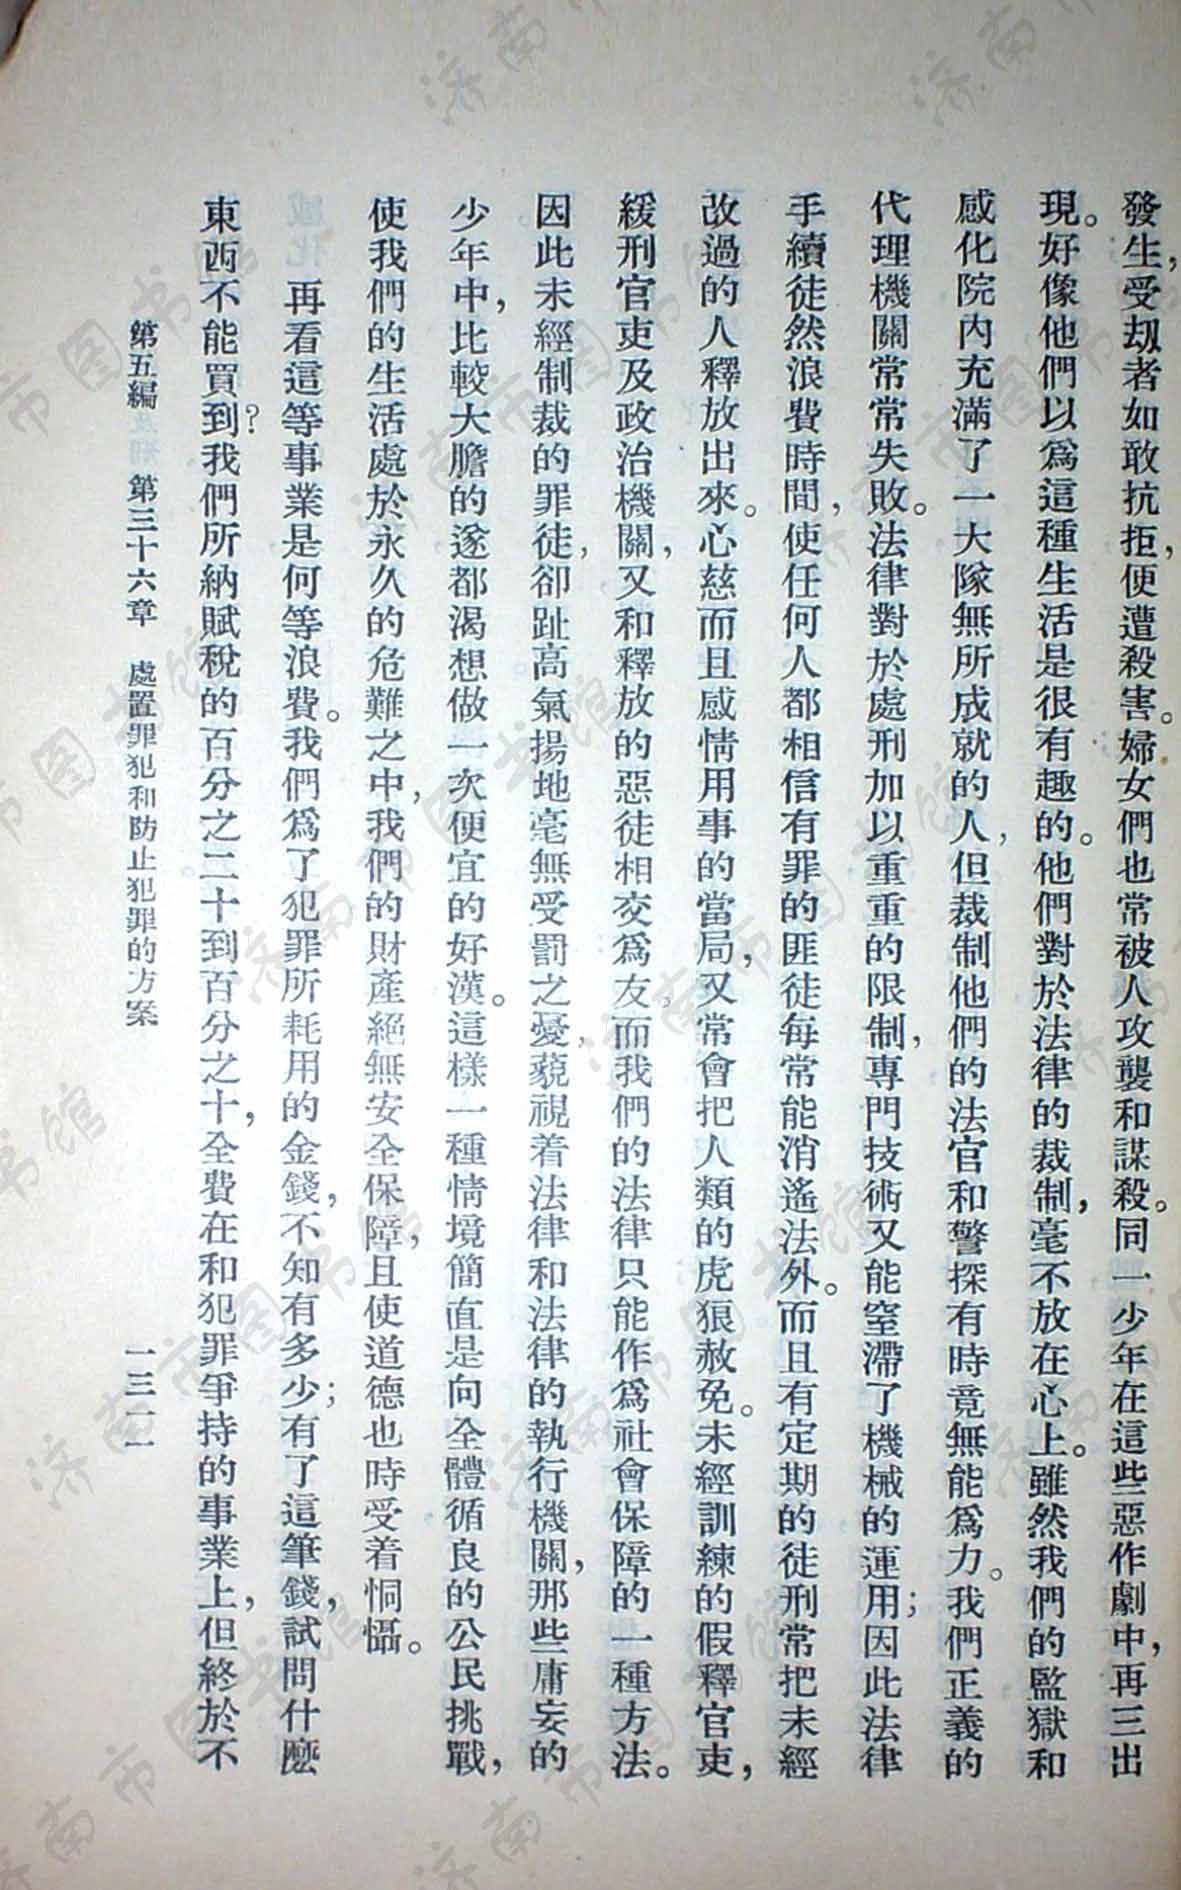 發生，受劫者如敢抗拒，便遭殺害。婦女們也常被人攻襲和謀殺。同一少年在這些惡作劇中，再三出
現。好像他們以爲這種生活是很有趣的。他們對於法律的裁制，毫不放在心上。雖然我們的監獄和
感化院內充滿了一大隊無所成就的人，但裁制他們的法官和警探有時竟無能爲力。我們正義的
代理機關常常失敗。法律對於處刑加以重重的限制，專門技術又能窒滯了機械的運用；因此法律
手續徒然浪費時間，使任何人都相信有罪的匪徒每常能消遙法外。而且有定期的徒刑常把未經
改過的人釋放出來。心慈而且感情用事的當局，又常會把人類的虎狼赦免。未經訓練的假釋官吏，
緩刑官吏及政治機關，又和釋放的惡徒相交爲友，而我們的法律只能作爲社會保障的一種方法。
因此未經制裁的罪徒，卻趾高氣揚地毫無受罰之憂，藐視着法律和法律的執行機關，那些庸妄的
少年中，比較大膽的遂都渴想做一次便宜的好漢。這樣一種情境簡直是向全體循良的公民挑戰，
使我們的生活處於永久的危難之中，我們的財產絕無安全保障，且使道德也時受着恫懾。
再看這等事業是何等浪費。我們爲了犯罪所耗用的金錢，不知有多少；有了這筆錢，試問什麼
東西不能買到？我們所納賦稅的百分之二十到百分之十，全費在和犯罪爭持的事業上，但終於不
第五編 第三十六章 處置罪犯和防止犯罪的方案 一三一一
济南市图书馆
济南市图书馆
济南市图书馆
济南市图书馆
济南市图书馆
济南市图书馆